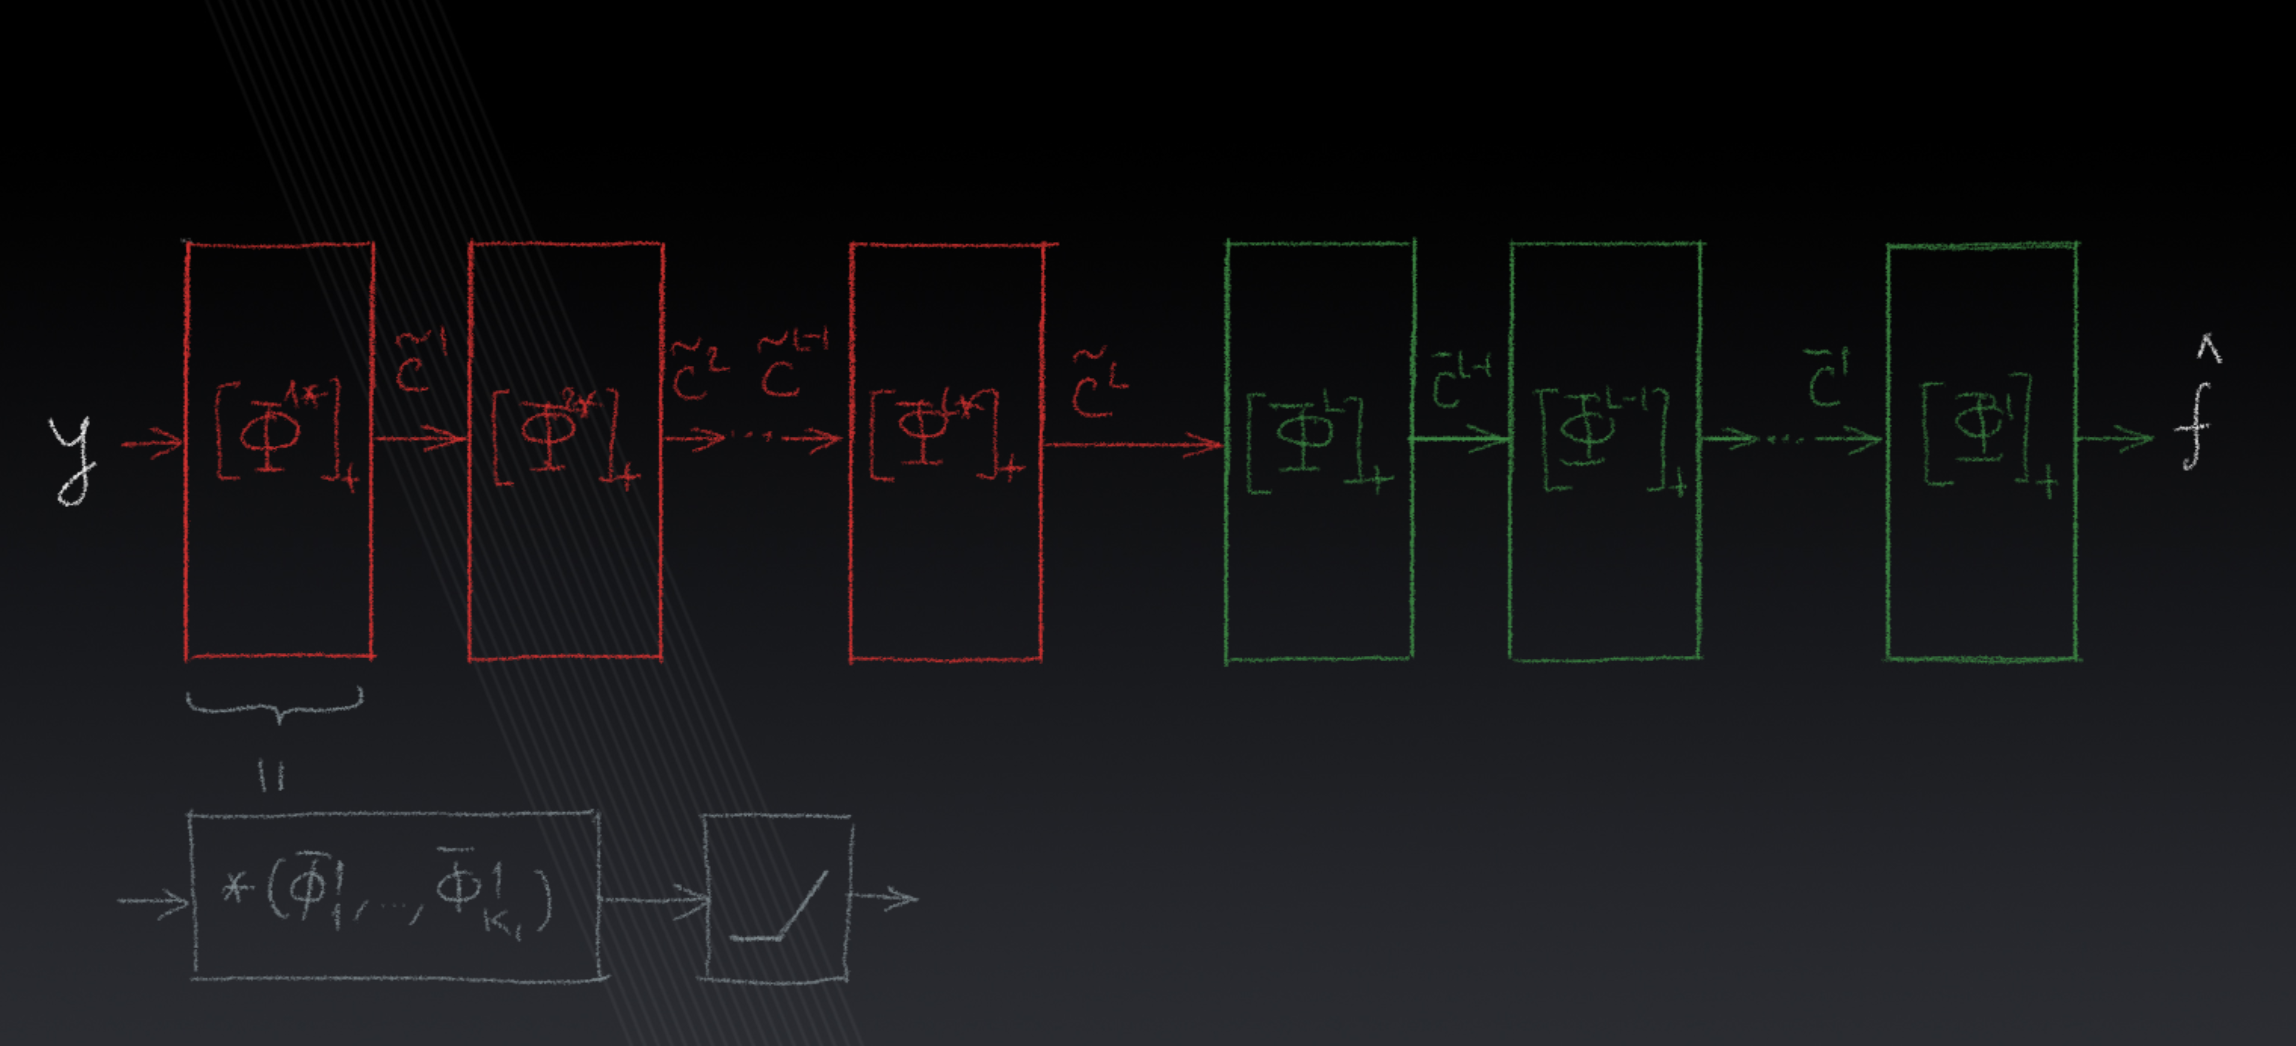 y → [Φ¹*]₊ → c̃¹ → [Φ²*]₊ → c̃² ... c̃ᴸ⁻¹ → [Φᴸ*]₊ → c̃ᴸ → [Φᴸ]₊ → c̄ᴸ⁻¹ → [Φᴸ⁻¹]₊ → ... c̄¹ → [Φ¹]₊ → f̂
=
→ * (Φ̄¹₁, ..., Φ̄¹_K₁) → →